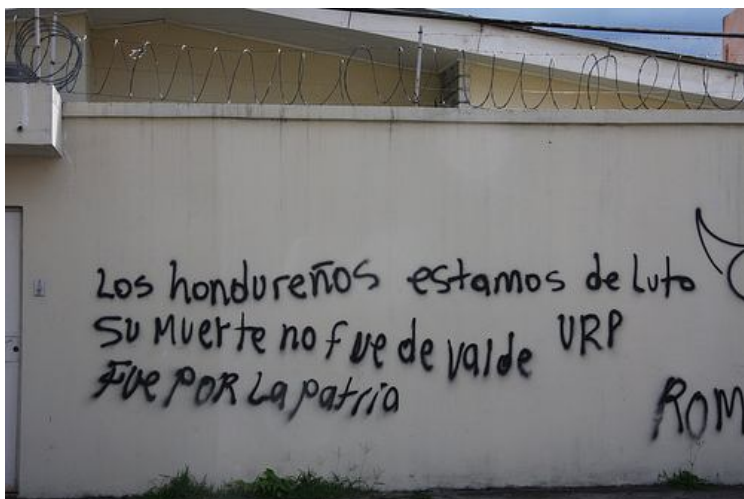 Los hondureños estamos de luto
su muerte no fue de valde URP
Fue POR La patria
ROM